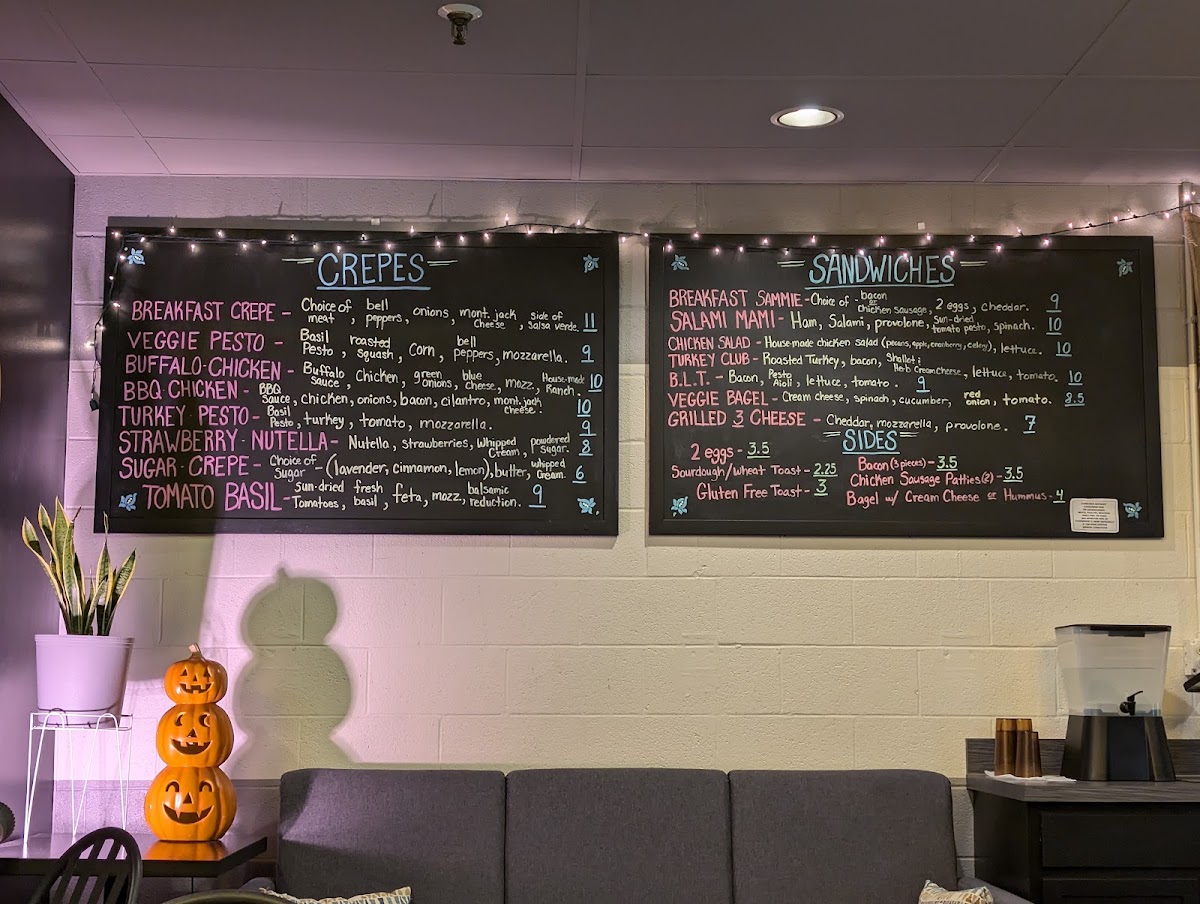 CREPES
BREAKFAST CREPE - Choice of meat, bell peppers, onions, mont. jack cheese, side of salsa verde. 11
VEGGIE PESTO - Basil Pesto, roasted squash, corn, bell peppers, mozzarella. 9
BUFFALO-CHICKEN - Buffalo sauce, chicken, green onions, blue cheese, mozz, House-made Ranch. 10
BBQ CHICKEN - BBQ sauce, chicken, onions, bacon, cilantro, mont. jack cheese. 10
TURKEY PESTO - Basil Pesto, turkey, tomato, mozzarella. 9
STRAWBERRY-NUTELLA - Nutella, strawberries, whipped cream, powdered sugar. 8
SUGAR CREPE - Choice of Sugar - (lavender, cinnamon, lemon), butter, whipped cream. 6
TOMATO BASIL - Sun-dried Tomatoes, fresh basil, feta, mozz, balsamic reduction. 9
SANDWICHES
BREAKFAST SAMMIE - Choice of - bacon or chicken sausage, 2 eggs, cheddar. 9
SALAMI MAMI - Ham, Salami, provolone, sun-dried tomato pesto, spinach. 10
CHICKEN SALAD - House-made chicken salad (pecans, apple, cranberry, celery), lettuce. 10
TURKEY CLUB - Roasted Turkey, bacon, Shallot & Herb Cream Cheese, lettuce, tomato. 10
B.L.T. - Bacon, Pesto Aioli, lettuce, tomato. 9
VEGGIE BAGEL - Cream cheese, spinach, cucumber, red onion, tomato. 8.5
GRILLED 3 CHEESE - Cheddar, mozzarella, provolone. 7
SIDES
2 eggs - 3.5
Sourdough/wheat Toast - 2.25
Gluten Free Toast - 3
Bacon (3 pieces) - 3.5
Chicken Sausage Patties (2) - 3.5
Bagel w/ Cream Cheese or Hummus - 4